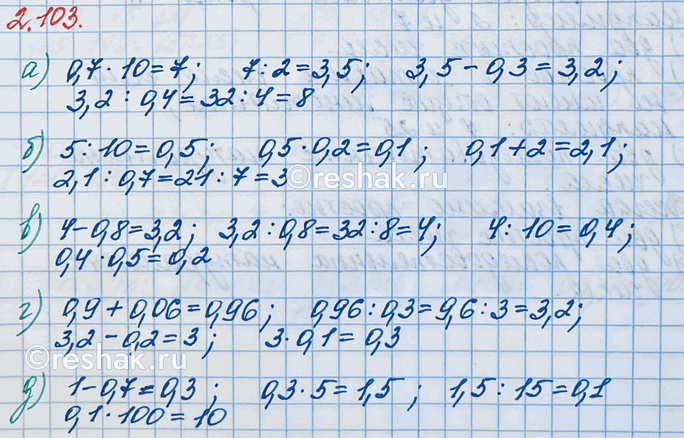 2.103.
а) 0,7 · 10 = 7; 7 : 2 = 3,5; 3,5 - 0,3 = 3,2;
3,2 : 0,4 = 32 : 4 = 8
б) 5 : 10 = 0,5; 0,5 · 0,2 = 0,1; 0,1 + 2 = 2,1;
2,1 : 0,7 = 21 : 7 = 3
©reshak.ru
в) 4 - 0,8 = 3,2; 3,2 : 0,8 = 32 : 8 = 4; 4 : 10 = 0,4;
0,4 · 0,5 = 0,2
г) 0,9 + 0,06 = 0,96; 0,96 : 0,3 = 9,6 : 3 = 3,2;
3,2 - 0,2 = 3; 3 · 0,1 = 0,3
©reshak.ru
д) 1 - 0,7 = 0,3; 0,3 · 5 = 1,5; 1,5 : 15 = 0,1
0,1 · 100 = 10